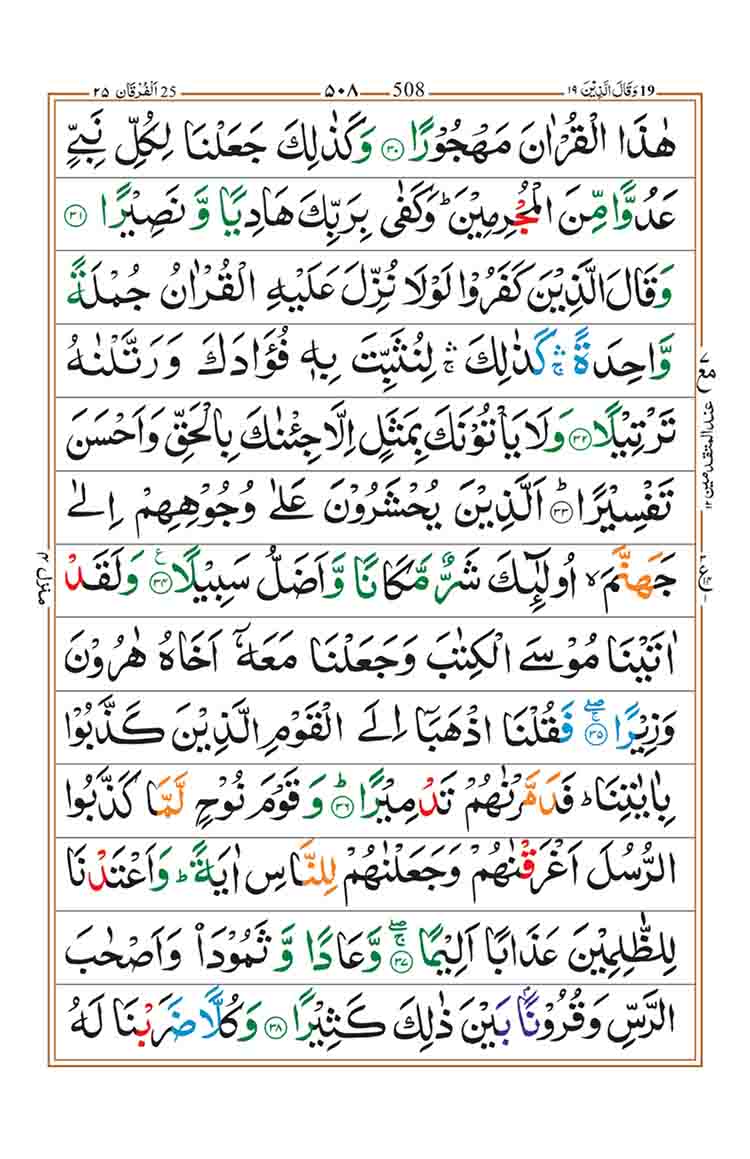 19 وَقَالَ الَّذِيْنَ ١٩ 508 ٥٠٨ 25 اَلْفُرْقَان ٢٥
هٰذَا الْقُرْاٰنَ مَهْجُوْرًا ۝٣٠ وَكَذٰلِكَ جَعَلْنَا لِكُلِّ نَبِيٍّ
عَدُوًّا مِّنَ الْمُجْرِمِيْنَ ؕ وَكَفٰى بِرَبِّكَ هَادِيًا وَّ نَصِيْرًا ۝٣١
وَقَالَ الَّذِيْنَ كَفَرُوْا لَوْلَا نُزِّلَ عَلَيْهِ الْقُرْاٰنُ جُمْلَةً
وَّاحِدَةً ۛۚ كَذٰلِكَ ۛۚ لِنُثَبِّتَ بِهٖ فُؤَادَكَ وَ رَتَّلْنٰهُ
تَرْتِيْلًا ۝٣٢ وَلَا يَاْتُوْنَكَ بِمَثَلٍ اِلَّا جِئْنٰكَ بِالْحَقِّ وَاَحْسَنَ
تَفْسِيْرًا ؕ۝٣٣ اَلَّذِيْنَ يُحْشَرُوْنَ عَلٰى وُجُوْهِهِمْ اِلٰى
جَهَنَّمَ ۙ اُولٰٓئِكَ شَرٌّ مَّكَانًا وَّاَضَلُّ سَبِيْلًا ۝٣٤ۧ وَلَقَدْ
اٰتَيْنَا مُوْسَى الْكِتٰبَ وَجَعَلْنَا مَعَهٗۤ اَخَاهُ هٰرُوْنَ
وَزِيْرًا ۚۖ۝٣٥ فَقُلْنَا اذْهَبَاۤ اِلَى الْقَوْمِ الَّذِيْنَ كَذَّبُوْا
بِاٰيٰتِنَا ؕ فَدَمَّرْنٰهُمْ تَدْمِيْرًا ؕ۝٣٦ وَ قَوْمَ نُوْحٍ لَّمَّا كَذَّبُوا
الرُّسُلَ اَغْرَقْنٰهُمْ وَجَعَلْنٰهُمْ لِلنَّاسِ اٰيَةً ؕ وَاَعْتَدْنَا
لِلظّٰلِمِيْنَ عَذَابًا اَلِيْمًا ۚۖ۝٣٧ وَّعَادًا وَّ ثَمُوْدَا۟ وَاَصْحٰبَ
الرَّسِّ وَقُرُوْنًۢا بَيْنَ ذٰلِكَ كَثِيْرًا ۝٣٨ وَكُلًّا ضَرَبْنَا لَهُ
مع ٧
عند المتقدمين ١٢
منزل ٤